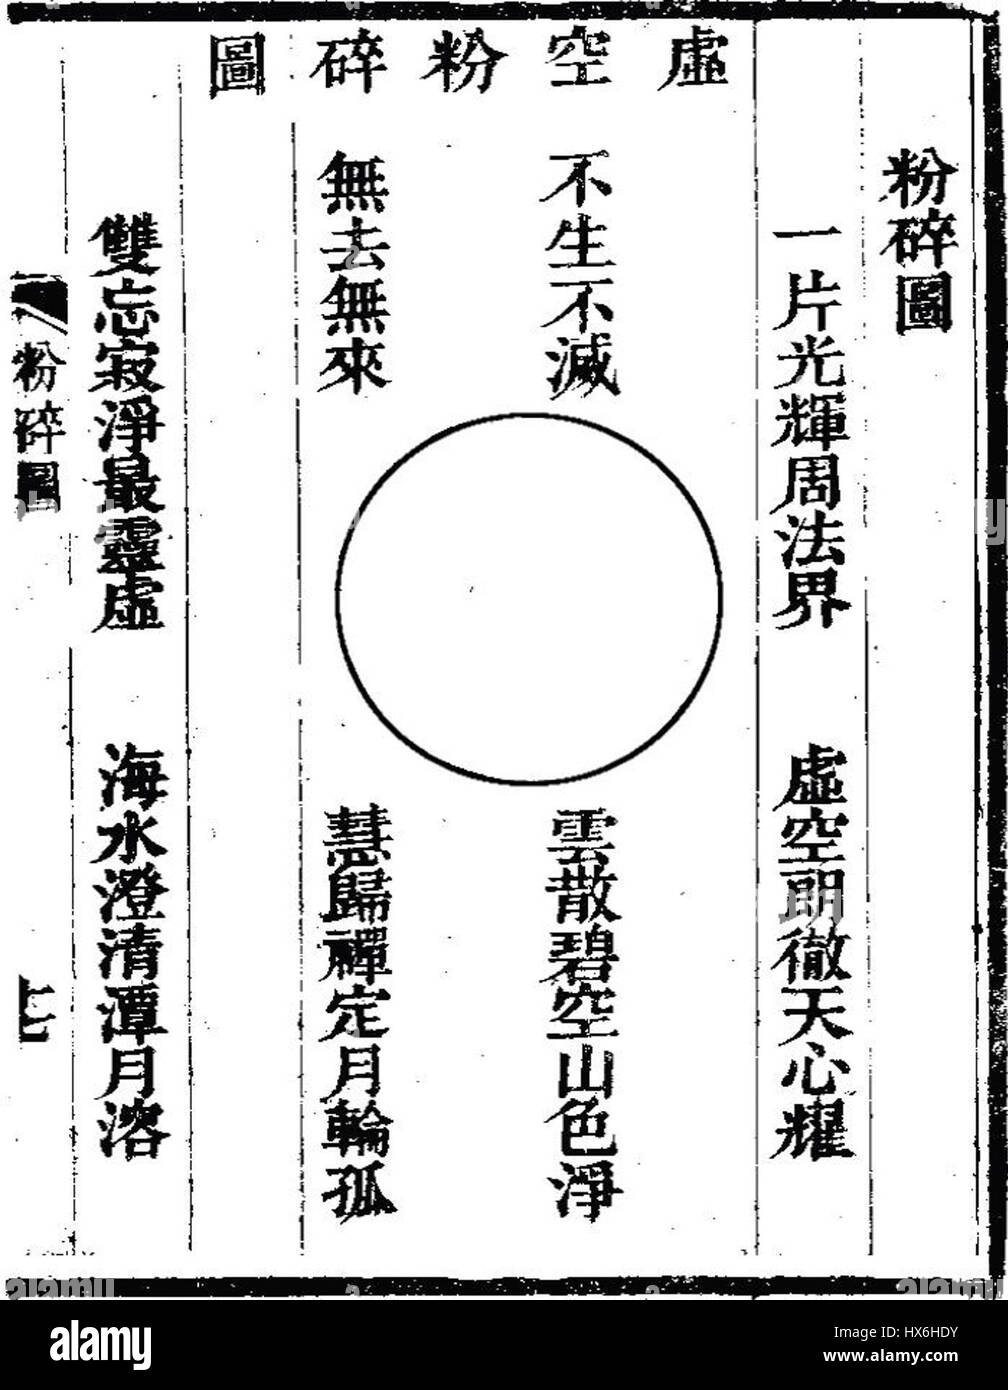 粉碎圖
一片光輝周法界 虛空朗徹天心耀
虛空粉碎圖
不生不滅
雲散碧空山色淨
無去無來
慧歸禪定月輪孤
雙忘寂淨最靈虛 海水澄清潭月溶
粉碎圖
七
alamy
Image ID: HX6HDY
www.alamy.com